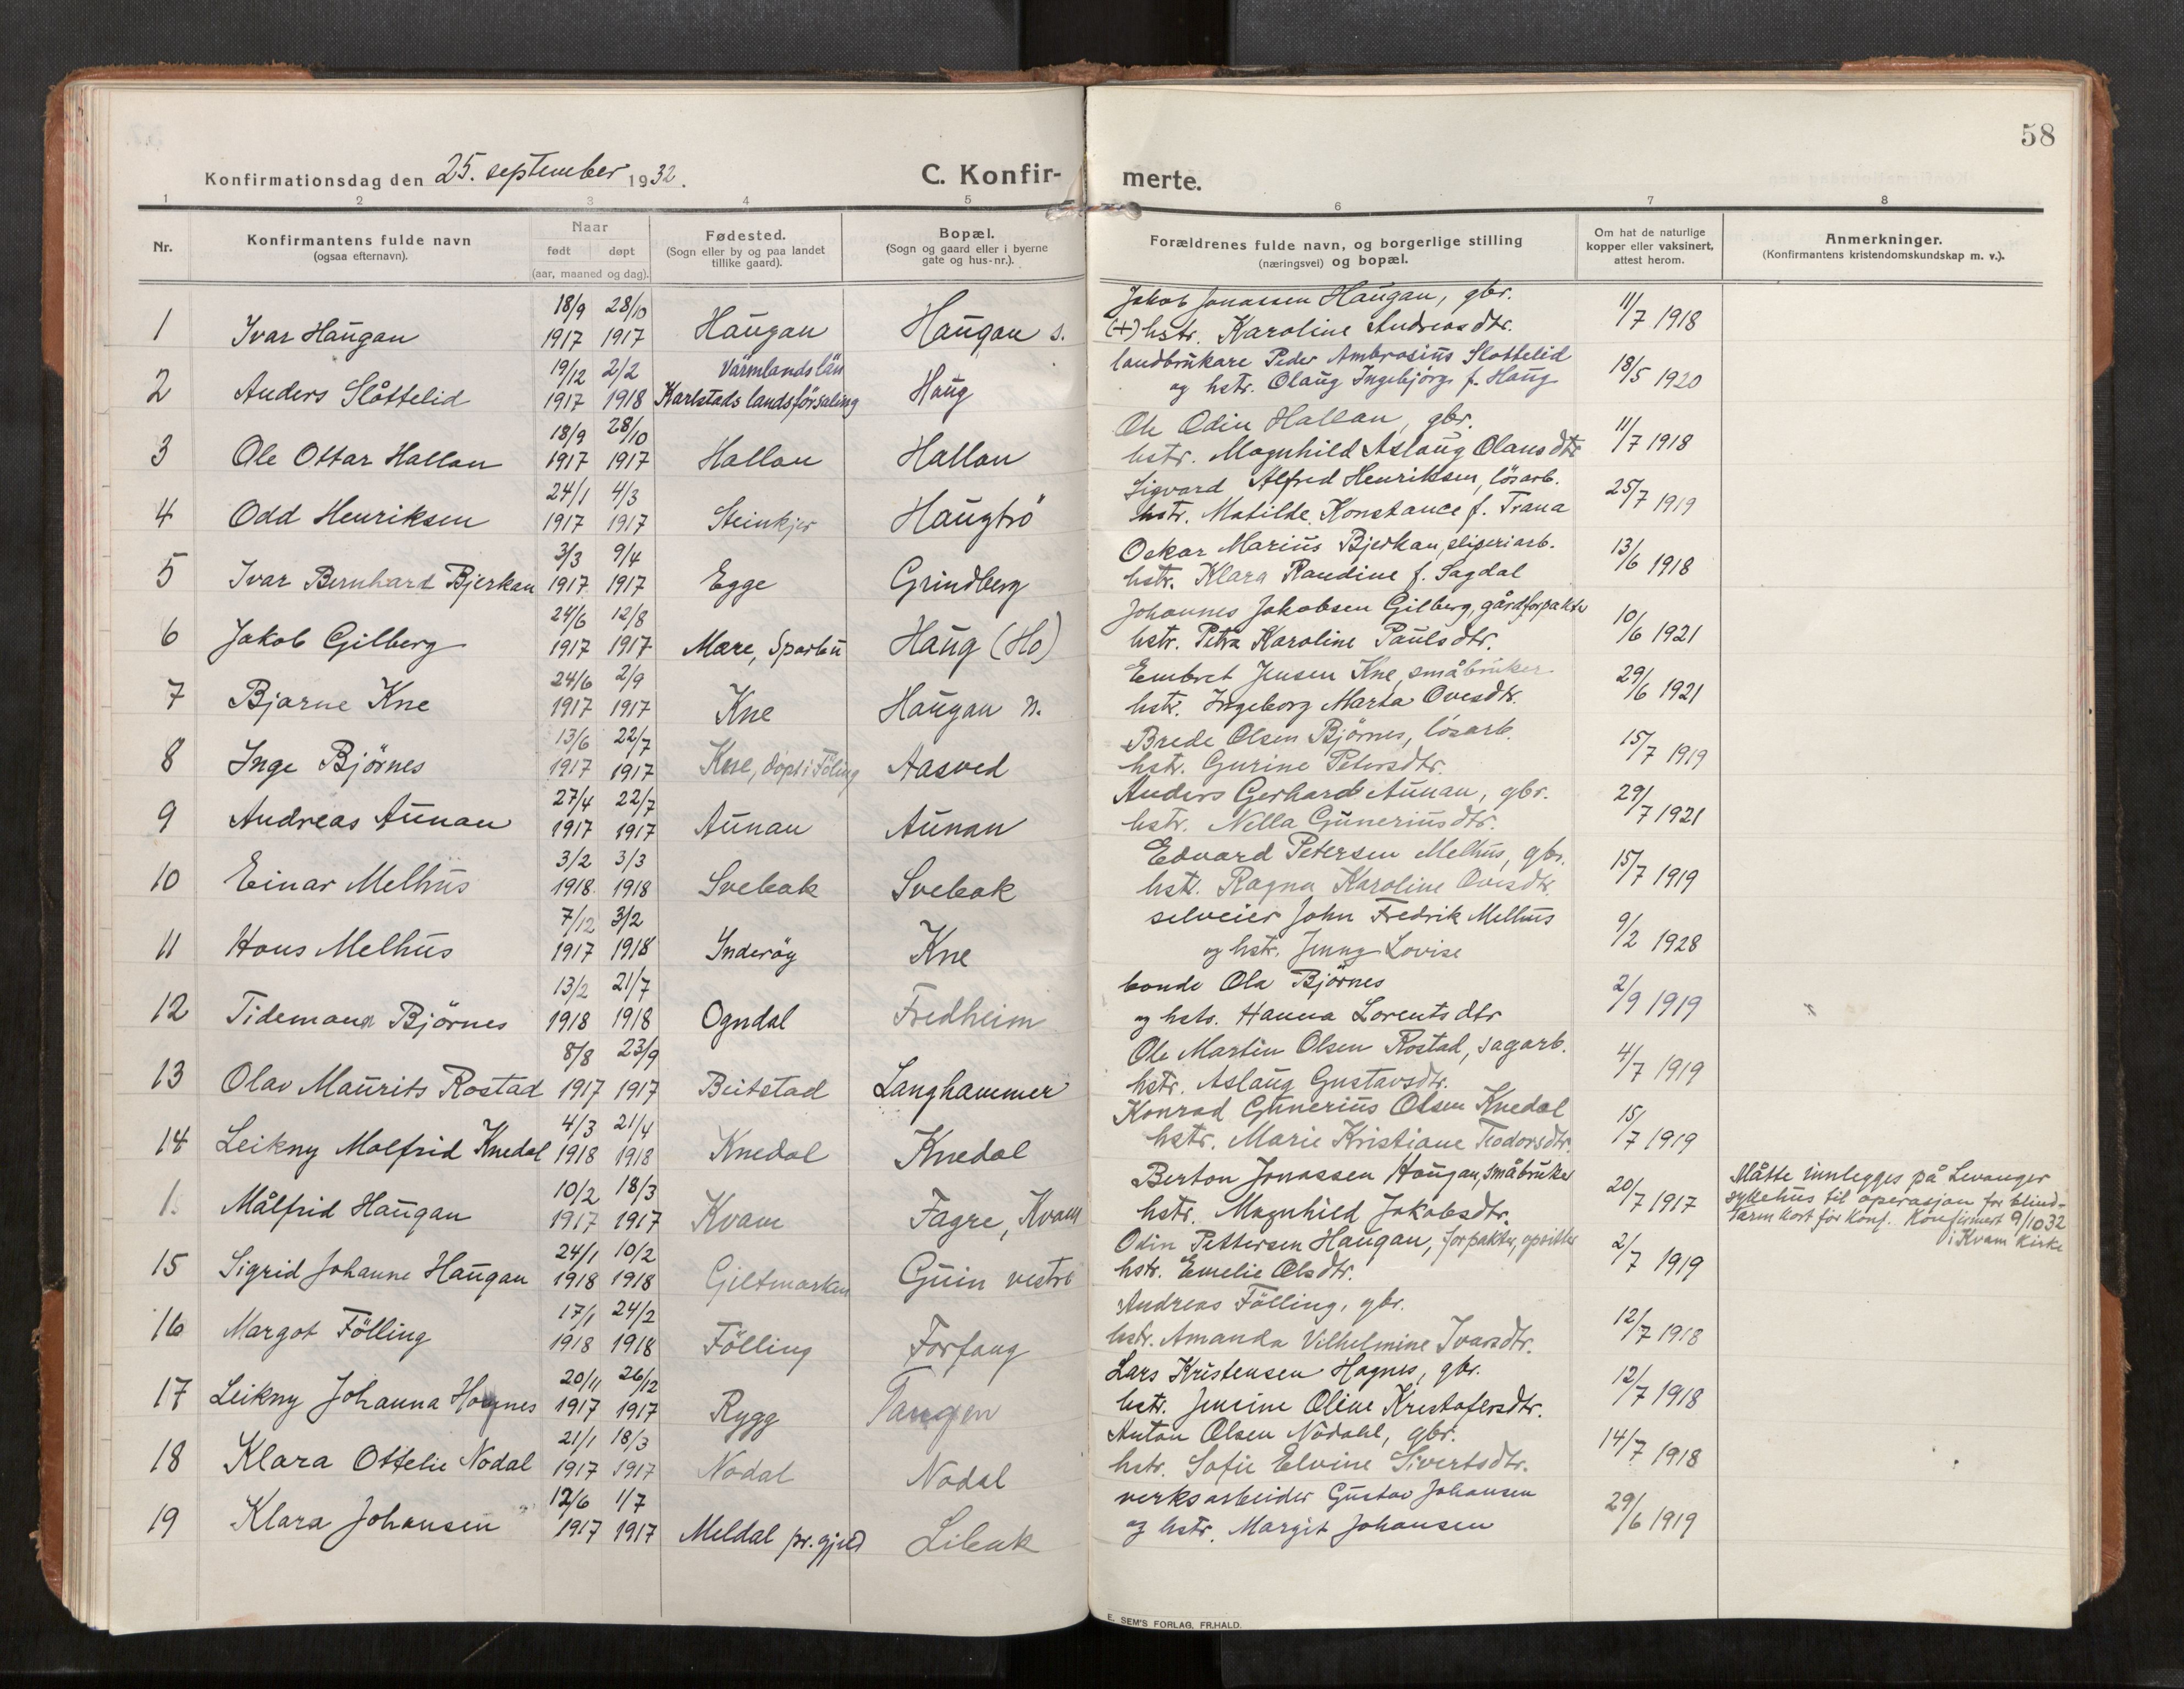 58
Konfirmationsdag den 25. september 1932.
C. Konfir-
merte.
1 2 3 4 5 6 7 8
Nr.
Konfirmantens fulde navn
(ogsaa efternavn).
Naar
født døpt
(aar, maaned og dag).
Fødested.
(Sogn eller by og paa landet
tillike gaard).
Bopæl.
(Sogn og gaard eller i byerne
gate og hus-nr.).
Forældrenes fulde navn, og borgerlige stilling
(næringsvei) og bopæl.
Om hat de naturlige
kopper eller vaksinert,
attest herom.
Anmerkninger.
(Konfirmantens kristendomskundskap m. v.).
18/9 28/10 Jakob Jonassen Haugan, gbr.
1 Ivar Haugan 1917 1917 Haugan Haugan s. (+) hstr. Karoline Andreasdtr. 11/7 1918
19/12 2/2 Värmlands län landbrukare Peder Ambrosius Slottelid
2 Anders Slåttelid 1917 1918 Karlstads landsförsaling Haug og hstr. Olaug Ingebjørg f. Haug 18/5 1920
18/9 28/10 Ole Odin Hallan, gbr.
3 Ole Ottar Hallan 1917 1917 Hallan Hallan hstr. Magnhild Aslaug Olausdtr 11/7 1918
24/1 4/3 Sigvard Alfred Henriksen, lösarb.
4 Odd Henriksen 1917 1917 Steinkjer Haugtrö hstr. Matilde Konstance f. Trana 25/7 1919
3/3 9/4 Oskar Marius Bjerkan, sliperiarb.
5 Ivar Bernhard Bjerkan 1917 1917 Egge Grindberg hstr. Klara Randine f. Sagdal 13/6 1918
24/6 12/8 Johannes Jakobsen Gilberg, gårdforpakter
6 Jakob Gilberg 1917 1917 Mære, Sparbu Haug (Ho) hstr. Petra Karoline Paulsdtr. 10/6 1921
24/6 2/9 Embret Jensen Kne, småbruker
7 Bjarne Kne 1917 1917 Kne Haugan n. hstr. Ingeborg Marta Ovesdtr. 29/6 1921
13/6 22/7 Brede Olsen Björnes, lösarb.
8 Inge Björnes 1917 1917 Kne, döpt i Föling Aasved hstr. Gurine Petersdtr. 15/7 1919
27/4 22/7 Anders Gerhard Aunan, gbr.
9 Andreas Aunan 1917 1917 Aunan Aunan hstr. Nella Guneriusdtr. 29/7 1921
3/2 3/3 Edvard Petersen Melhus, gbr.
10 Einar Melhus 1918 1918 Svebak Svebak hstr. Ragna Karoline Ovesdtr. 15/7 1919
7/12 3/2 selveier John Fredrik Melhus
11 Hans Melhus 1917 1918 Inderöy Kne og hstr. Jenny Lovise 9/2 1928
13/2 21/7 bonde Ola Björnes
12 Tidemann Björnes 1918 1918 Ogndal Fredheim og hstr. Hanna Lorentsdtr 2/9 1919
8/8 23/9 Ole Martin Olsen Rostad, sagarb.
13 Olav Maurits Rostad 1917 1917 Beitstad Langhammer hstr. Aslaug Gustavsdtr. 4/7 1919
4/3 21/4 Konrad Gunerius Olsen Knedal
14 Leikny Malfrid Knedal 1918 1918 Knedal Knedal hstr. Marie Kristiane Teodorsdtr. 15/7 1919
10/2 18/3 Berton Jonassen Haugan, småbruker Måtte innlegges på Levanger
1. Målfrid Haugan 1917 1917 Kvam Fagre, Kvam hstr. Magnhild Jakobsdtr. 20/7 1917 sykehus til operasjon for blind-
tarm kort för konf. Konfirmert 9/10 32
i Kvam kirke
24/1 10/2 Odin Pettersen Haugan, forpakter, opsitter
15 Sigrid Johanne Haugan 1918 1918 Giltmarken Guin vestre hstr. Emelie Olsdtr. 2/7 1919
17/1 24/2 Andreas Fölling, gbr.
16 Margot Fölling 1918 1918 Fölling Forfang hstr. Amanda Vilhelmine Ivarsdtr. 12/7 1918
20/11 26/12 Lars Kristensen Hognes, gbr.
17 Leikny Johanna Hognes 1917 1917 Rygg Tangen hstr. Jensine Oline Kristofersdtr. 12/7 1918
21/1 18/3 Anton Olsen Nödahl, gbr.
18 Klara Ottelie Nodal 1917 1917 Nodal Nodal hstr. Sofie Elvine Sivertsdtr. 14/7 1918
12/6 1/7 verksarbeider Gustav Johansen
19 Klara Johansen 1917 1917 Meldal pr.gjeld Libak og hstr. Margit Johansen 29/6 1919
E. SEM'S FORLAG, FR.HALD.